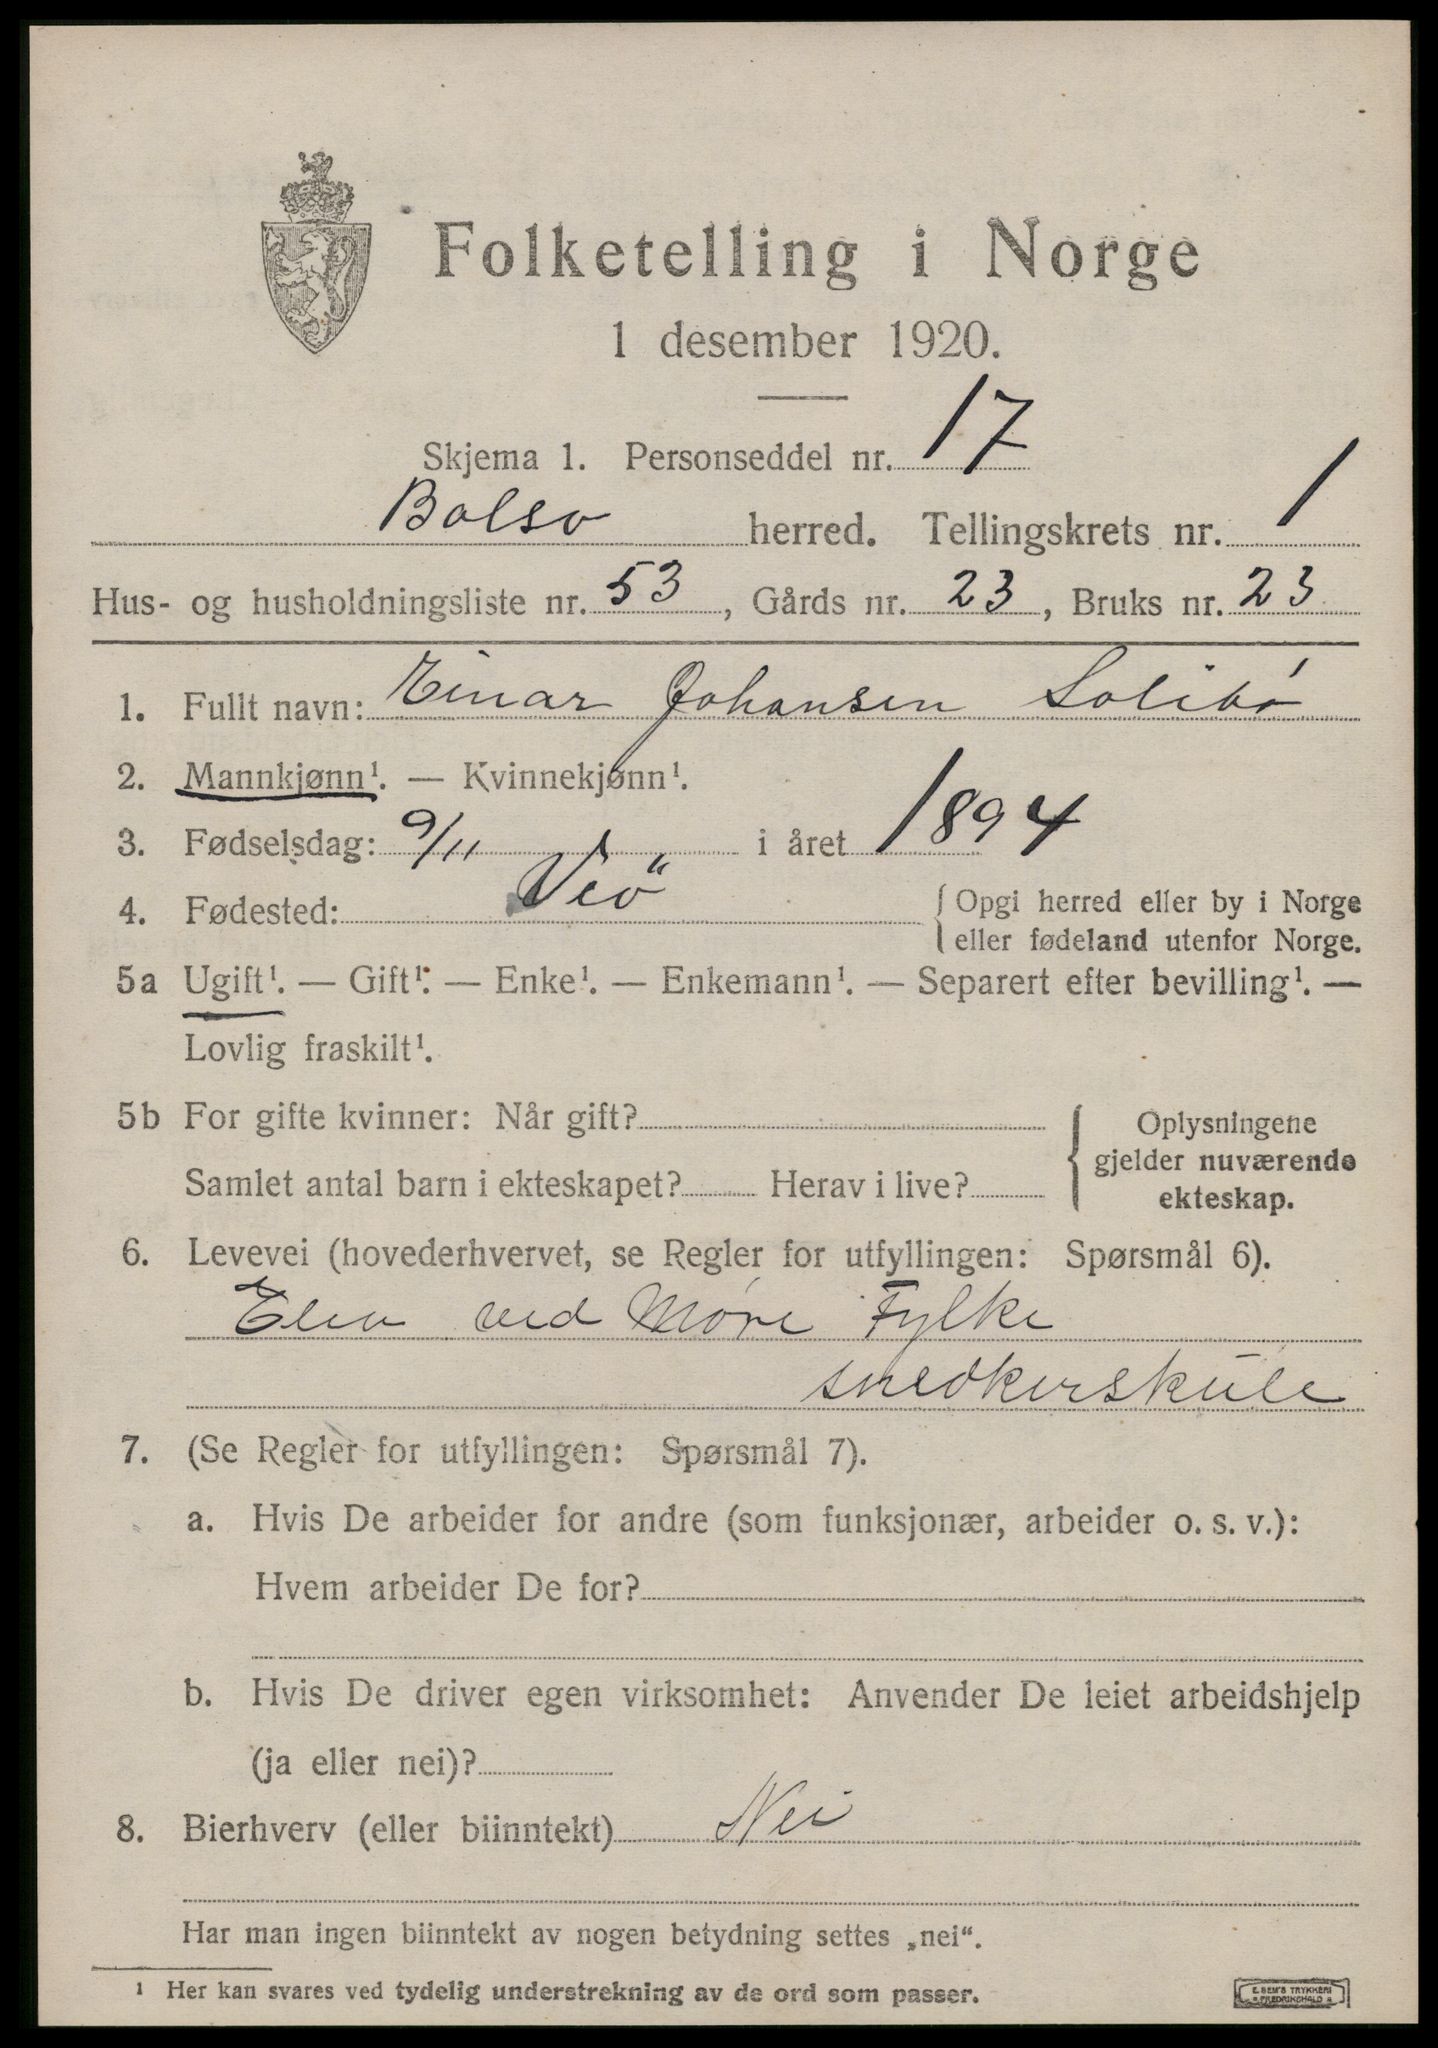 Folketelling i Norge
1 desember 1920.
Skjema 1. Personseddel nr. 17
Bolsø herred. Tellingskrets nr. 1
Hus- og husholdningsliste nr. 53, Gårds nr. 23, Bruks nr. 23
1. Fullt navn: Einar Johansen Solibø
2. Mannkjønn¹. — Kvinnekjønn¹.
3. Fødselsdag: 9/11 i året 1894
4. Fødested: Veö {Opgi herred eller by i Norge
eller fødeland utenfor Norge.
5a Ugift¹. — Gift¹. — Enke¹. — Enkemann¹. — Separert efter bevilling¹. —
Lovlig fraskilt¹.
5b For gifte kvinner: Når gift? {Oplysningene
gjelder nuværende
Samlet antal barn i ekteskapet? Herav i live? ekteskap.
6. Levevei (hovederhvervet, se Regler for utfyllingen: Spørsmål 6).
Elev ved Møre Fylke
snedkerskule
7. (Se Regler for utfyllingen: Spørsmål 7).
a. Hvis De arbeider for andre (som funksjonær, arbeider o. s. v.):
Hvem arbeider De for?
b. Hvis De driver egen virksomhet: Anvender De leiet arbeidshjelp
(ja eller nei)?
8. Bierhverv (eller biinntekt) Nei
Har man ingen biinntekt av nogen betydning settes „nei“.
¹ Her kan svares ved tydelig understrekning av de ord som passer.
E. SEM'S TRYKKERI
FREDRIKSHALD